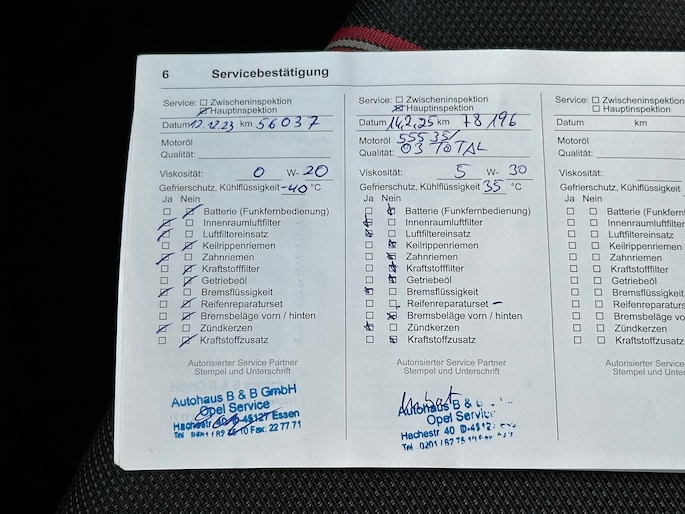 6 Servicebestätigung
Service: Zwischeninspektion
Hauptinspektion
Datum 12.12.23 km 56037
Motoröl
Qualität:
Viskosität: 0 W- 20
Gefrierschutz, Kühlflüssigkeit -40 °C
Ja Nein
Batterie (Funkfernbedienung)
Innenraumluftfilter
Luftfiltereinsatz
Keilrippenriemen
Zahnriemen
Kraftstofffilter
Getriebeöl
Bremsflüssigkeit
Reifenreparaturset
Bremsbeläge vorn / hinten
Zündkerzen
Kraftstoffzusatz
Autorisierter Service Partner
Stempel und Unterschrift
Autohaus B & B GmbH
Opel Service
Hachestr 40 D-45127 Essen
10 Fax: 22 77 71
Service: Zwischeninspektion
Hauptinspektion
Datum 14.2.25 km 78196
Motoröl
Qualität: 03 TOTAL
Viskosität: 5 W- 30
Gefrierschutz, Kühlflüssigkeit 35 °C
Ja Nein
Batterie (Funkfernbedienung)
Innenraumluftfilter
Luftfiltereinsatz
Keilrippenriemen
Zahnriemen
Kraftstofffilter
Getriebeöl
Bremsflüssigkeit
Reifenreparaturset –
Bremsbeläge vorn / hinten
Zündkerzen
Kraftstoffzusatz
Autorisierter Service Partner
Stempel und Unterschrift
Autohaus B &
Opel Service
Hachestr 40
Tel 0201 /
Service: Zwischeninspektion
Hauptinspektion
Datum km
Motoröl
Qualität:
Viskosität: W-
Gefrierschutz, Kühlflüssigkeit
Ja Nein
Batterie (Funkfernl
Innenraumluftfilter
Luftfiltereinsatz
Keilrippenriemen
Zahnriemen
Kraftstofffilter
Getriebeöl
Bremsflüssigkeit
Reifenreparaturs
Bremsbeläge vorn
Zündkerzen
Kraftstoffzusatz
Autorisierter Service Pa
Stempel und Untersch